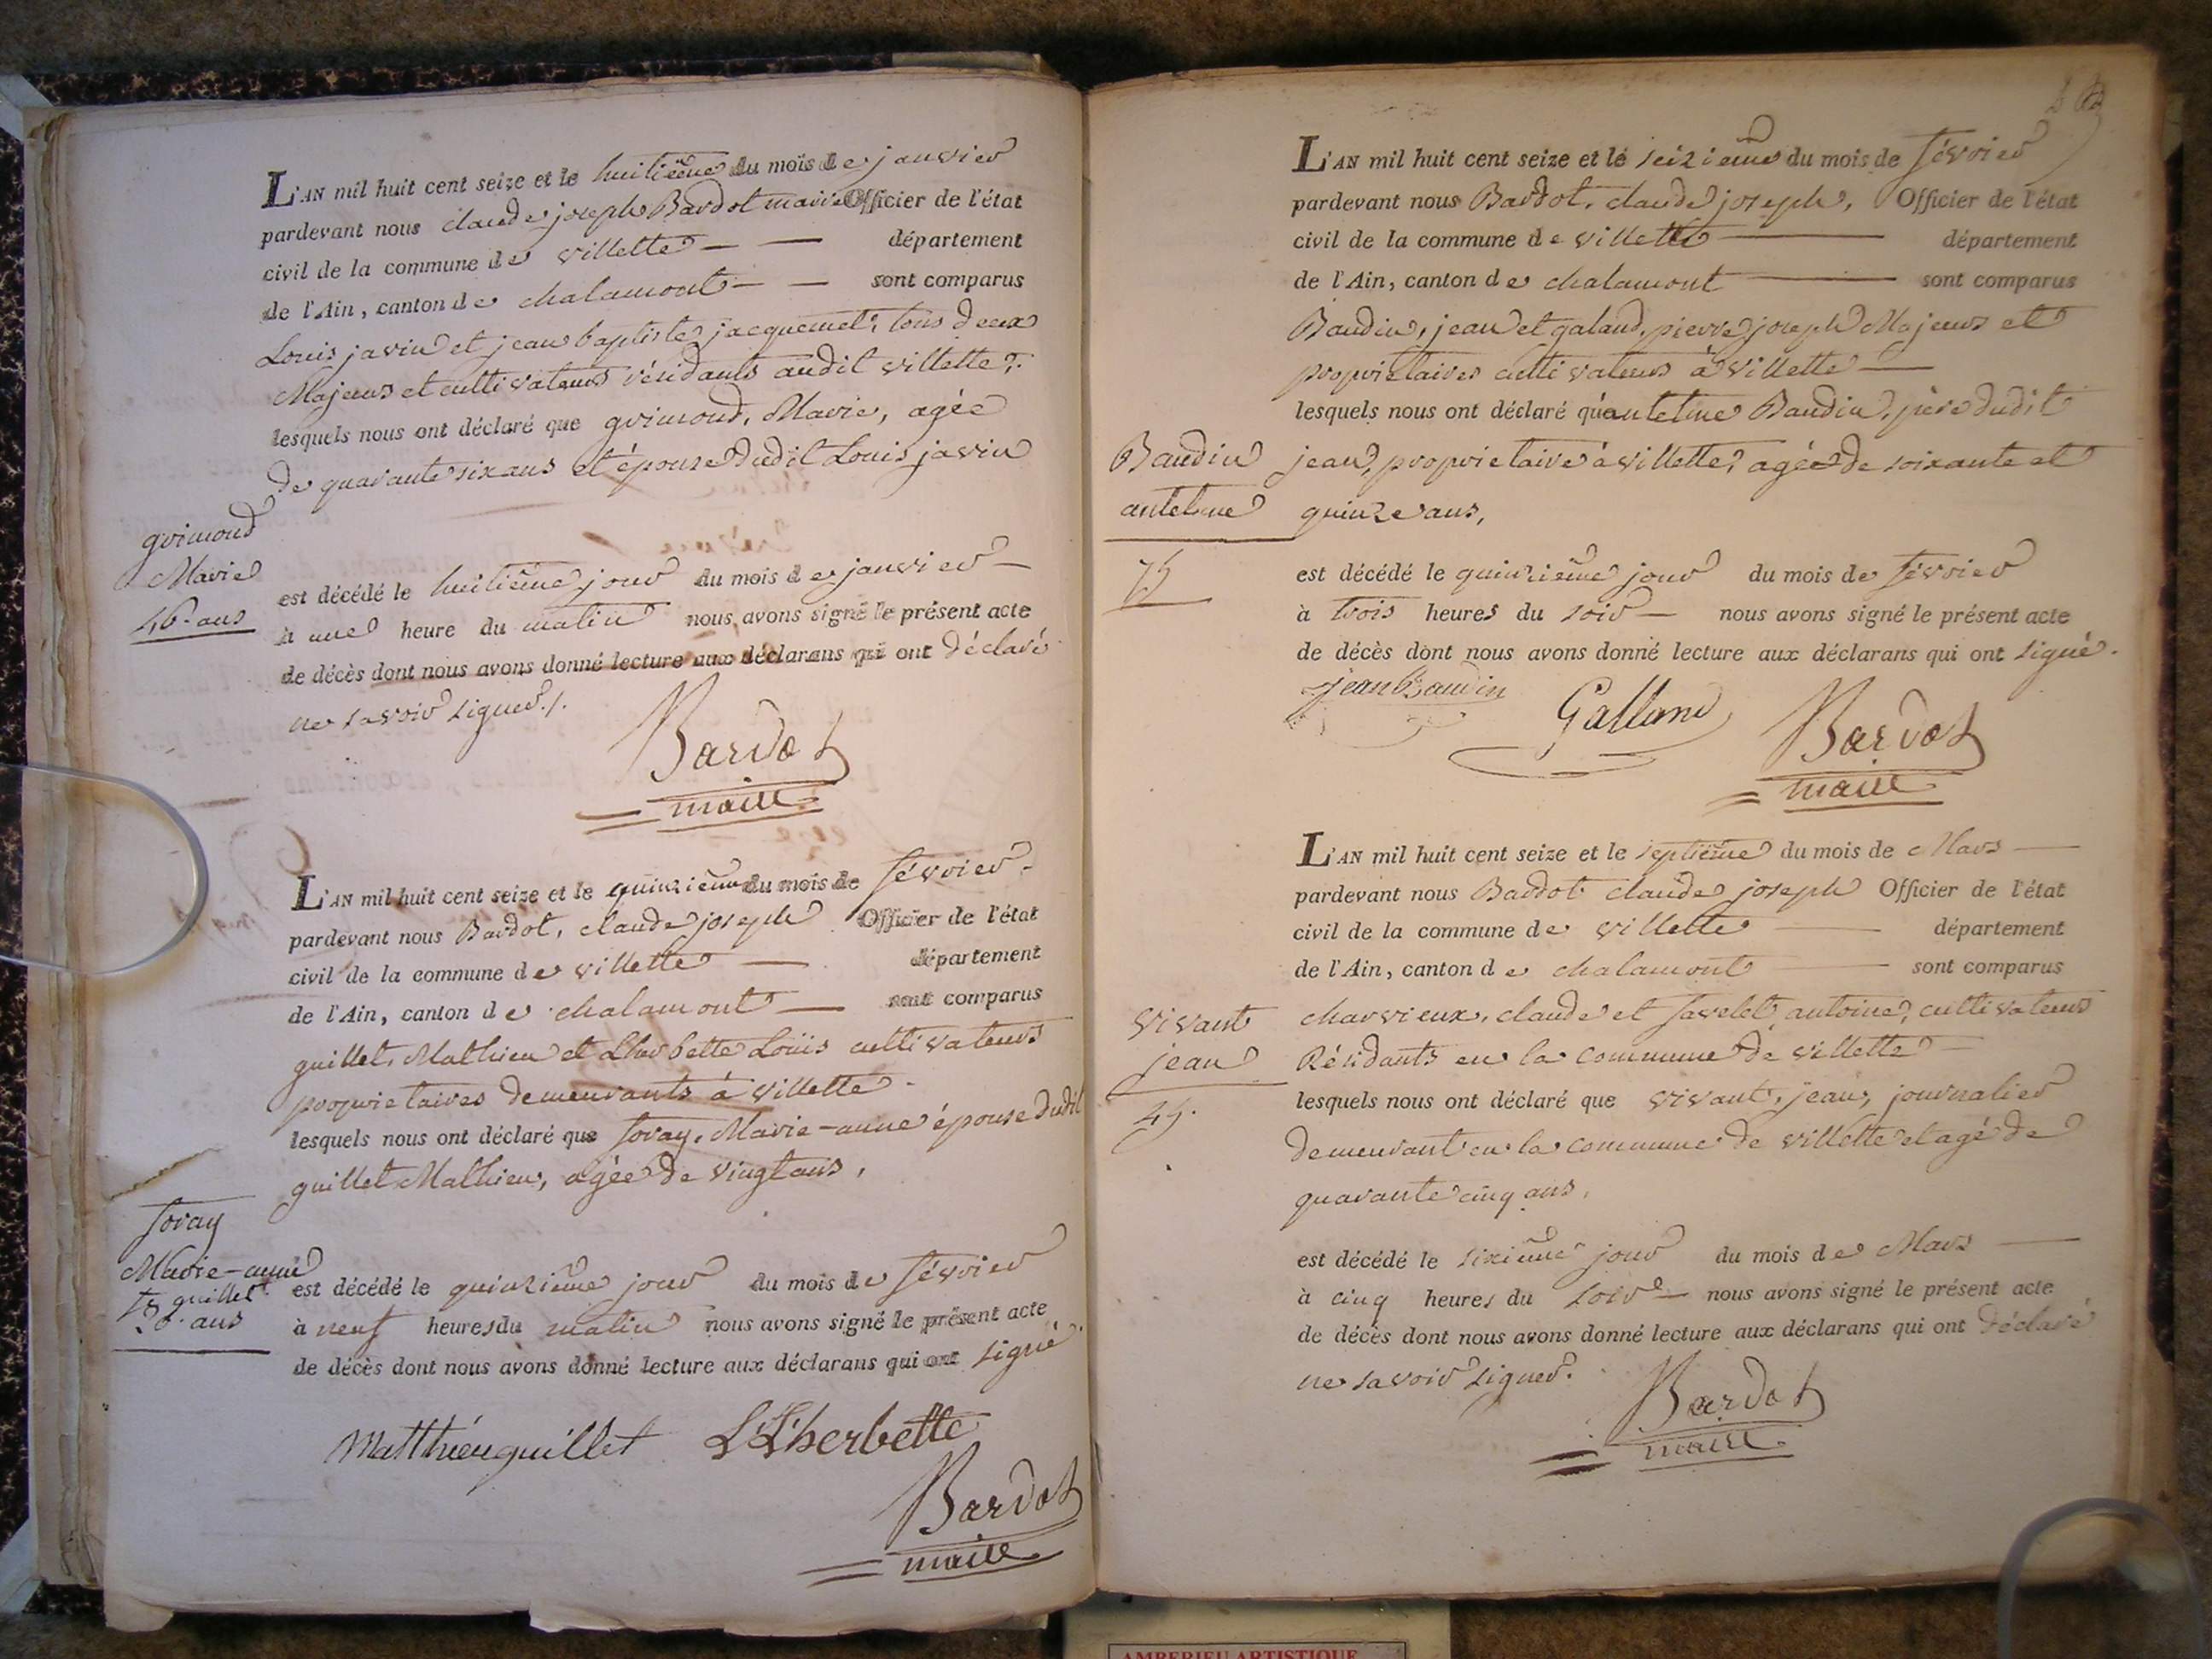 L'AN mil huit cent seize et le huitième du mois de janvier
pardevant nous claude joseph Bardot maire Officier de l'état
civil de la commune de villette — — département
de l'Ain, canton de chalamont — — sont comparus
Louis javin et jean baptiste jacquemet, tous deux
Majeurs et cultivateurs résidants audit villette,
lesquels nous ont déclaré que grimond, Marie, agée
de quarante six ans et épouse dudit Louis javin
grimond
Marie
46 ans
est décédé le huitième jour du mois de janvier —
à une heure du matin nous avons signé le présent acte
de décès dont nous avons donné lecture aux déclarans qui ont déclaré
ne savoir signer./.
Bardot
maire
L'AN mil huit cent seize et le quinzième du mois de février.
pardevant nous Bardot, claude joseph Officier de l'état
civil de la commune de villette — département
de l'Ain, canton de chalamont — sont comparus
guillet, Mathieu et Lherbette Louis cultivateurs
proprietaires demeurants à villette.
lesquels nous ont déclaré que foray, Marie-anne épouse dudit
guillet Mathieu, agée de vingt ans,
foray
Marie-anne
guillet
ans
est décédé le quinzième jour du mois de février
à neuf heures du matin nous avons signé le présent acte
de décès dont nous avons donné lecture aux déclarans qui ont signé.
Matthieu guillet L Lherbette
Bardot
maire
L'AN mil huit cent seize et le seizième du mois de février
pardevant nous Bardot, claude joseph, Officier de l'état
civil de la commune de villette — département
de l'Ain, canton de chalamont — sont comparus
Baudin, jean et galand, pierre joseph Majeurs et
proprietaires cultivateurs à villette —
lesquels nous ont déclaré qu'antelme Baudin, père dudit
jean, proprietaire à villette, agée de soixante et
quinze ans,
Baudin
antelme
75
est décédé le quinzième jour du mois de février
à trois heures du soir — nous avons signé le présent acte
de décès dont nous avons donné lecture aux déclarans qui ont signé.
jean Baudin Galland Bardot
maire
L'AN mil huit cent seize et le septième du mois de Mars —
pardevant nous Bardot claude joseph Officier de l'état
civil de la commune de villette — département
de l'Ain, canton de chalamont — sont comparus
charvieux, claude et favelet antoine, cultivateurs
Résidants en la commune de villette —
lesquels nous ont déclaré que vivant, jean, journalier
demeurant en la commune de villette et agé de
quarante cinq ans,
vivant
jean
45.
est décédé le sixième jour du mois de Mars —
à cinq heures du soir — nous avons signé le présent acte
de décès dont nous avons donné lecture aux déclarans qui ont déclaré
ne savoir signer.
Bardot
maire
AMBERIEU ARTISTIQUE